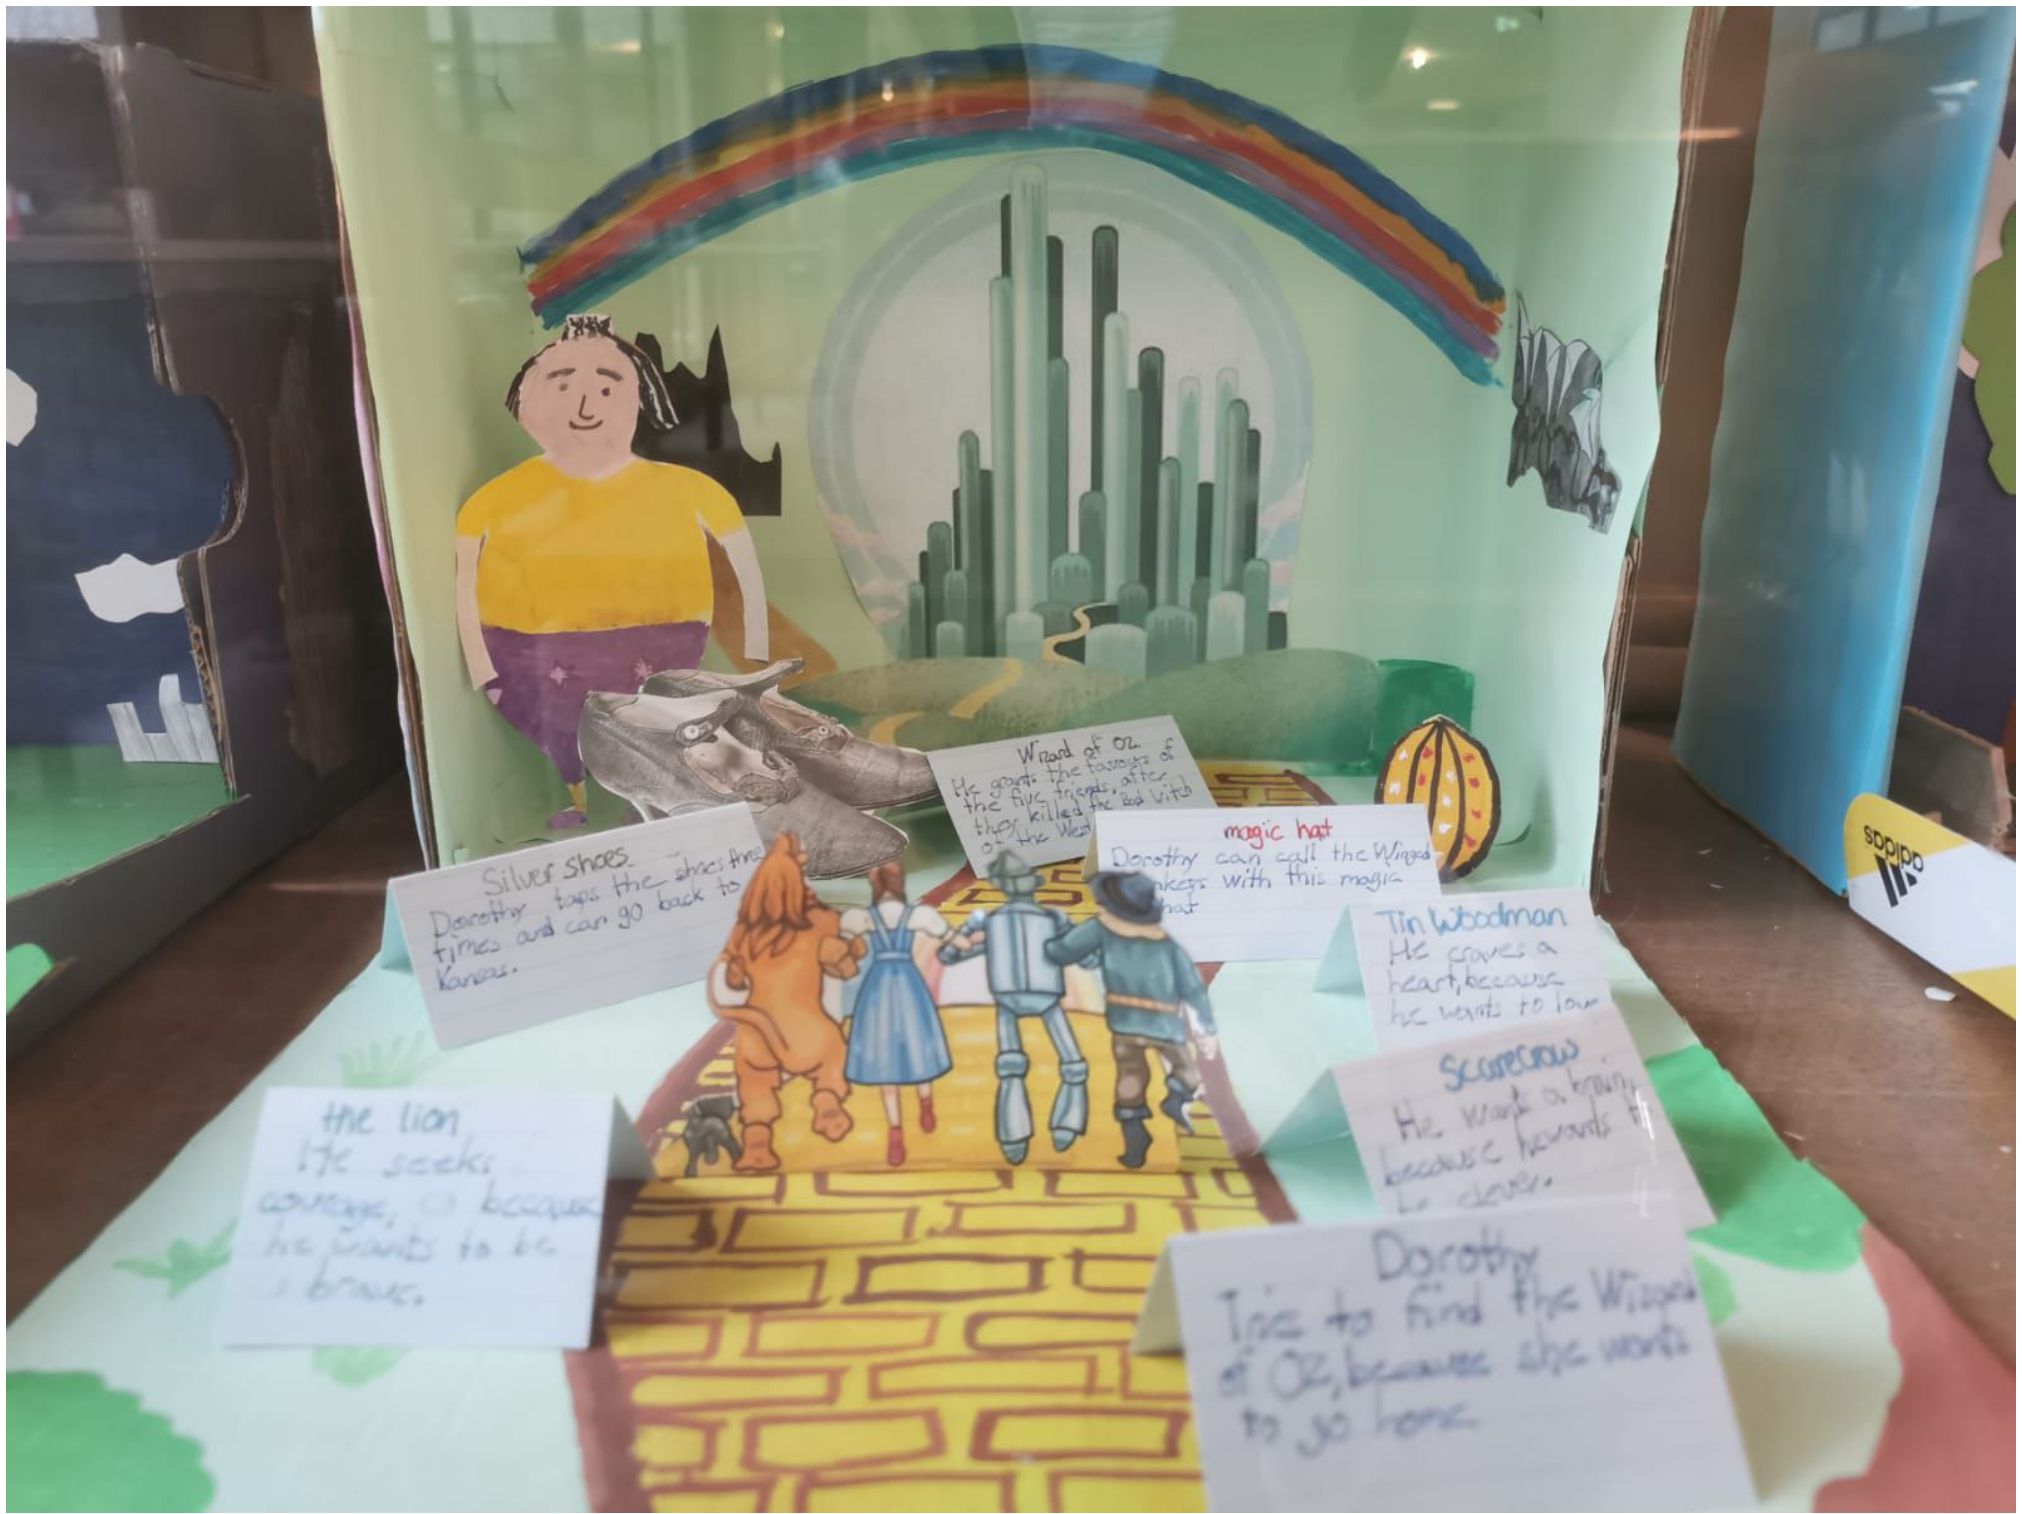 Wizard of Oz
He grants the favours of
the five friends, after
they killed the Bad Witch
of the West
magic hat
Dorothy can call the Winged
nkeys with this magic
hat
Silver shoes
Dorothy taps the shoes three
times and can go back to
Kansas.
Tin Woodman
He craves a
heart, because
he wants to love
Scarecrow
He wants a brain,
because he wants t
be clever.
the lion
He seeks
courage, because
he wants to be
brave.
Dorothy
Tries to find the Wizard
of Oz, because she wants
to go home
adidas